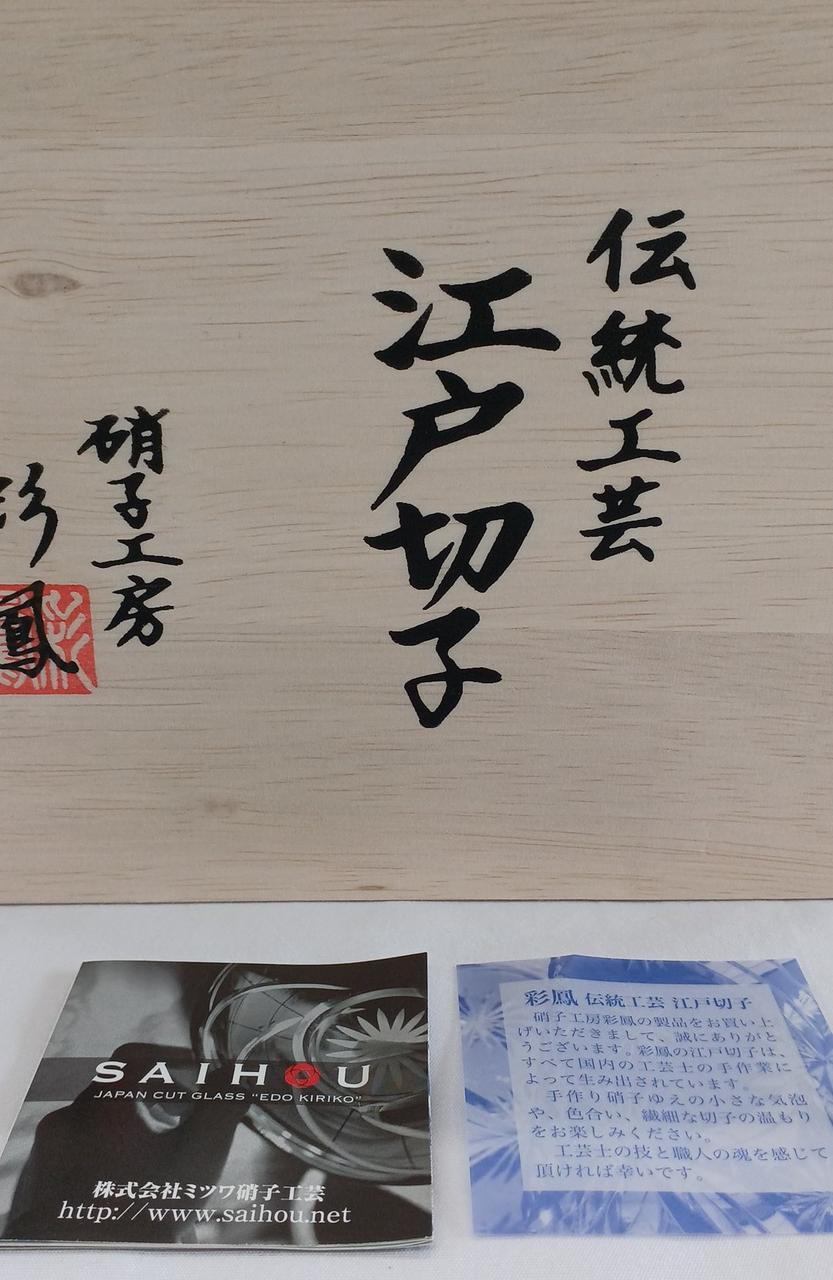 伝統工芸
江戸切子
硝子工房
彩鳳
SAIHOU
JAPAN CUT GLASS "EDO KIRIKO"
株式会社ミツワ硝子工芸
http://www.saihou.net
彩鳳 伝統工芸 江戸切子
硝子工房彩鳳の製品をお買い上
げいただきまして、誠にありがと
うございます。彩鳳の江戸切子は、
すべて国内の工芸士の手作業に
よって生み出されています。
手作り硝子ゆえの小さな気泡
や、色合い、繊細な切子の温もり
をお楽しみください。
工芸士の技と職人の魂を感じて
頂ければ幸いです。